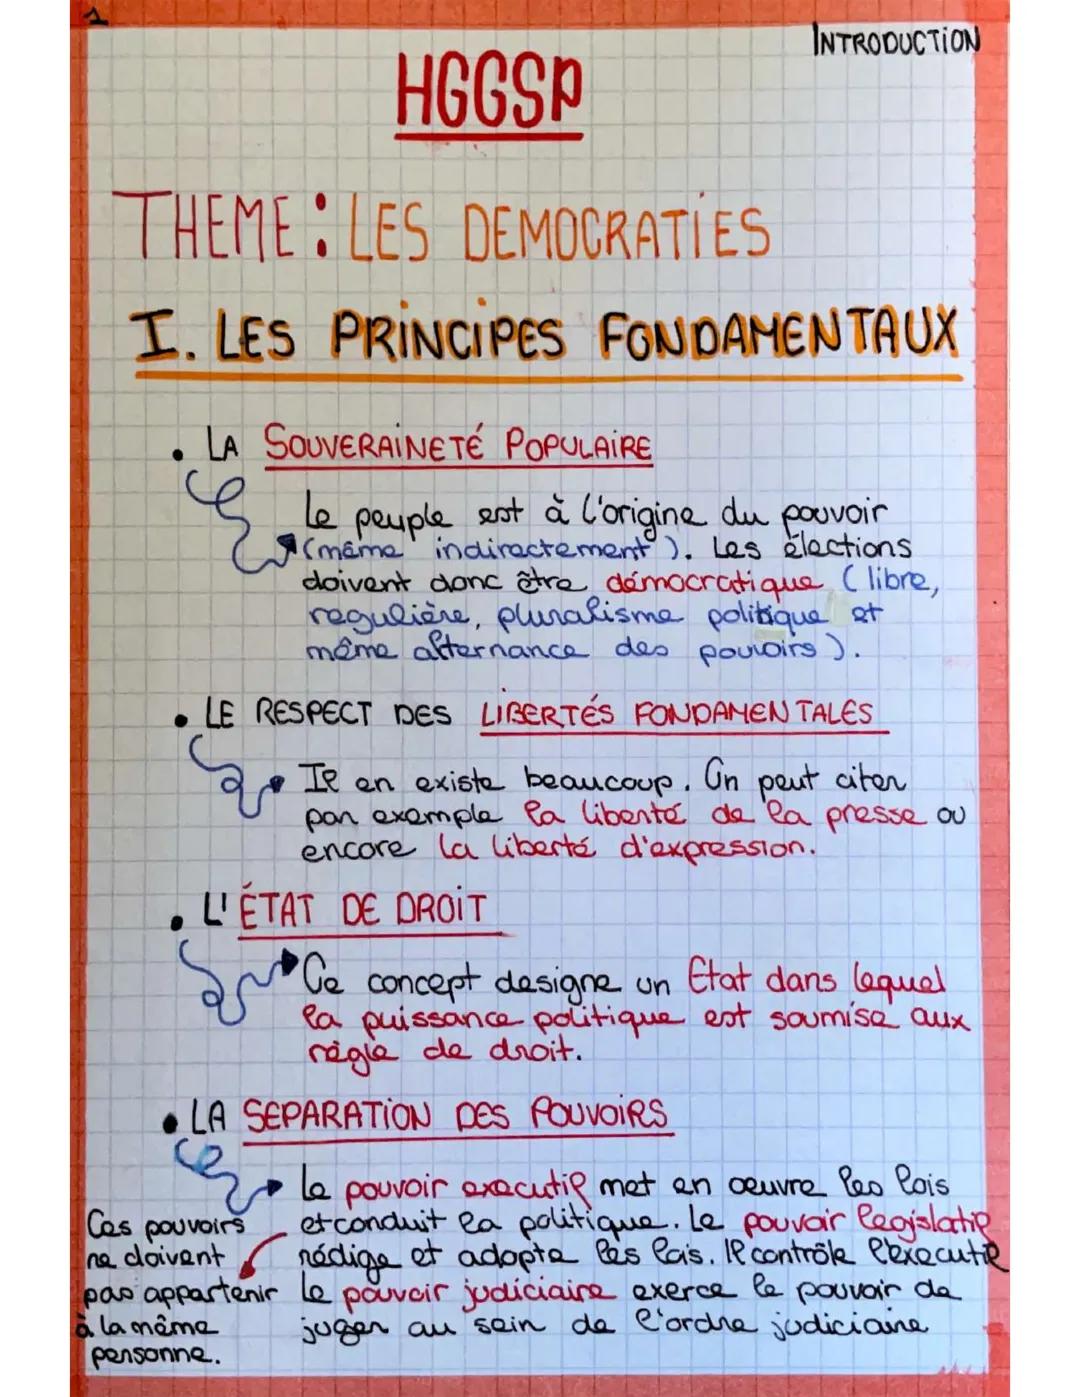 1
INTRODUCTION
HGGSP
THEME : LES DEMOCRATIES
I. LES PRINCIPES FONDAMENTAUX
• LA SOUVERAINETÉ POPULAIRE
Le peuple est à l'origine du pouvoir
(même indirectement). Les élections
doivent donc être démocratique (libre,
regulière, pluralisme politique et
même alternance des pouvoirs).
• LE RESPECT DES LIBERTÉS FONDAMENTALES
Il en existe beaucoup. On peut citer
par exemple la liberté de la presse ou
encore la liberté d'expression.
• L'ÉTAT DE DROIT
Ce concept designe un Etat dans lequel
la puissance politique est soumise aux
règle de droit.
• LA SEPARATION DES POUVOIRS
Le pouvoir executif met en œuvre les lois
et conduit la politique. Le pouvoir legislatif
rédige et adopte les lois. Il contrôle l'executif
Le pouvoir judiciaire exerce le pouvoir de
juger au sein de l'ordre judiciaire
Ces pouvoirs
ne doivent
pas appartenir
à la même
personne.